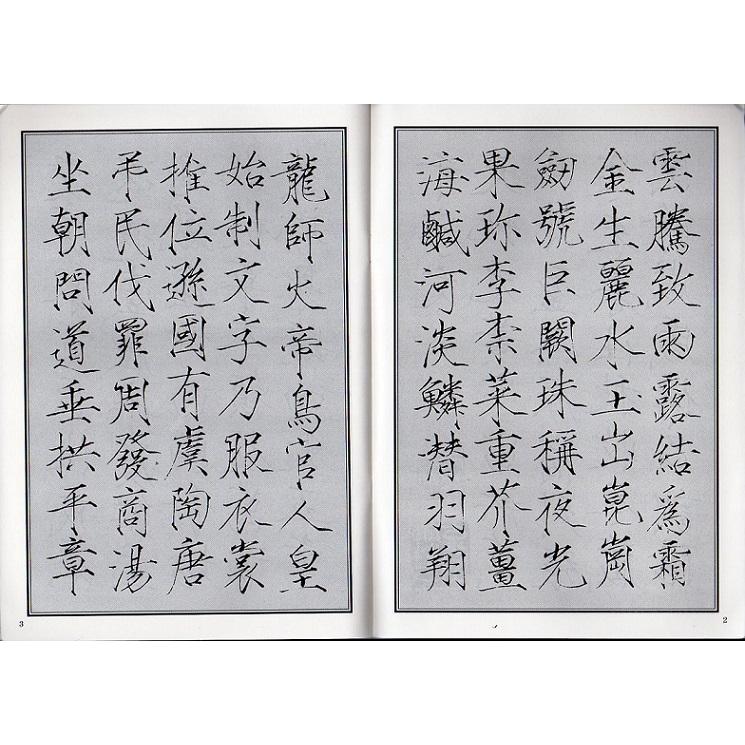 雲騰致雨露結為霜
金生麗水玉出崑崗
劒號巨闕珠稱夜光
果珎李柰菜重芥薑
海鹹河淡鱗潛羽翔
2
龍師火帝鳥官人皇
始制文字乃服衣裳
推位遜國有虞陶唐
弔民伐罪周發商湯
坐朝問道垂拱平章
3